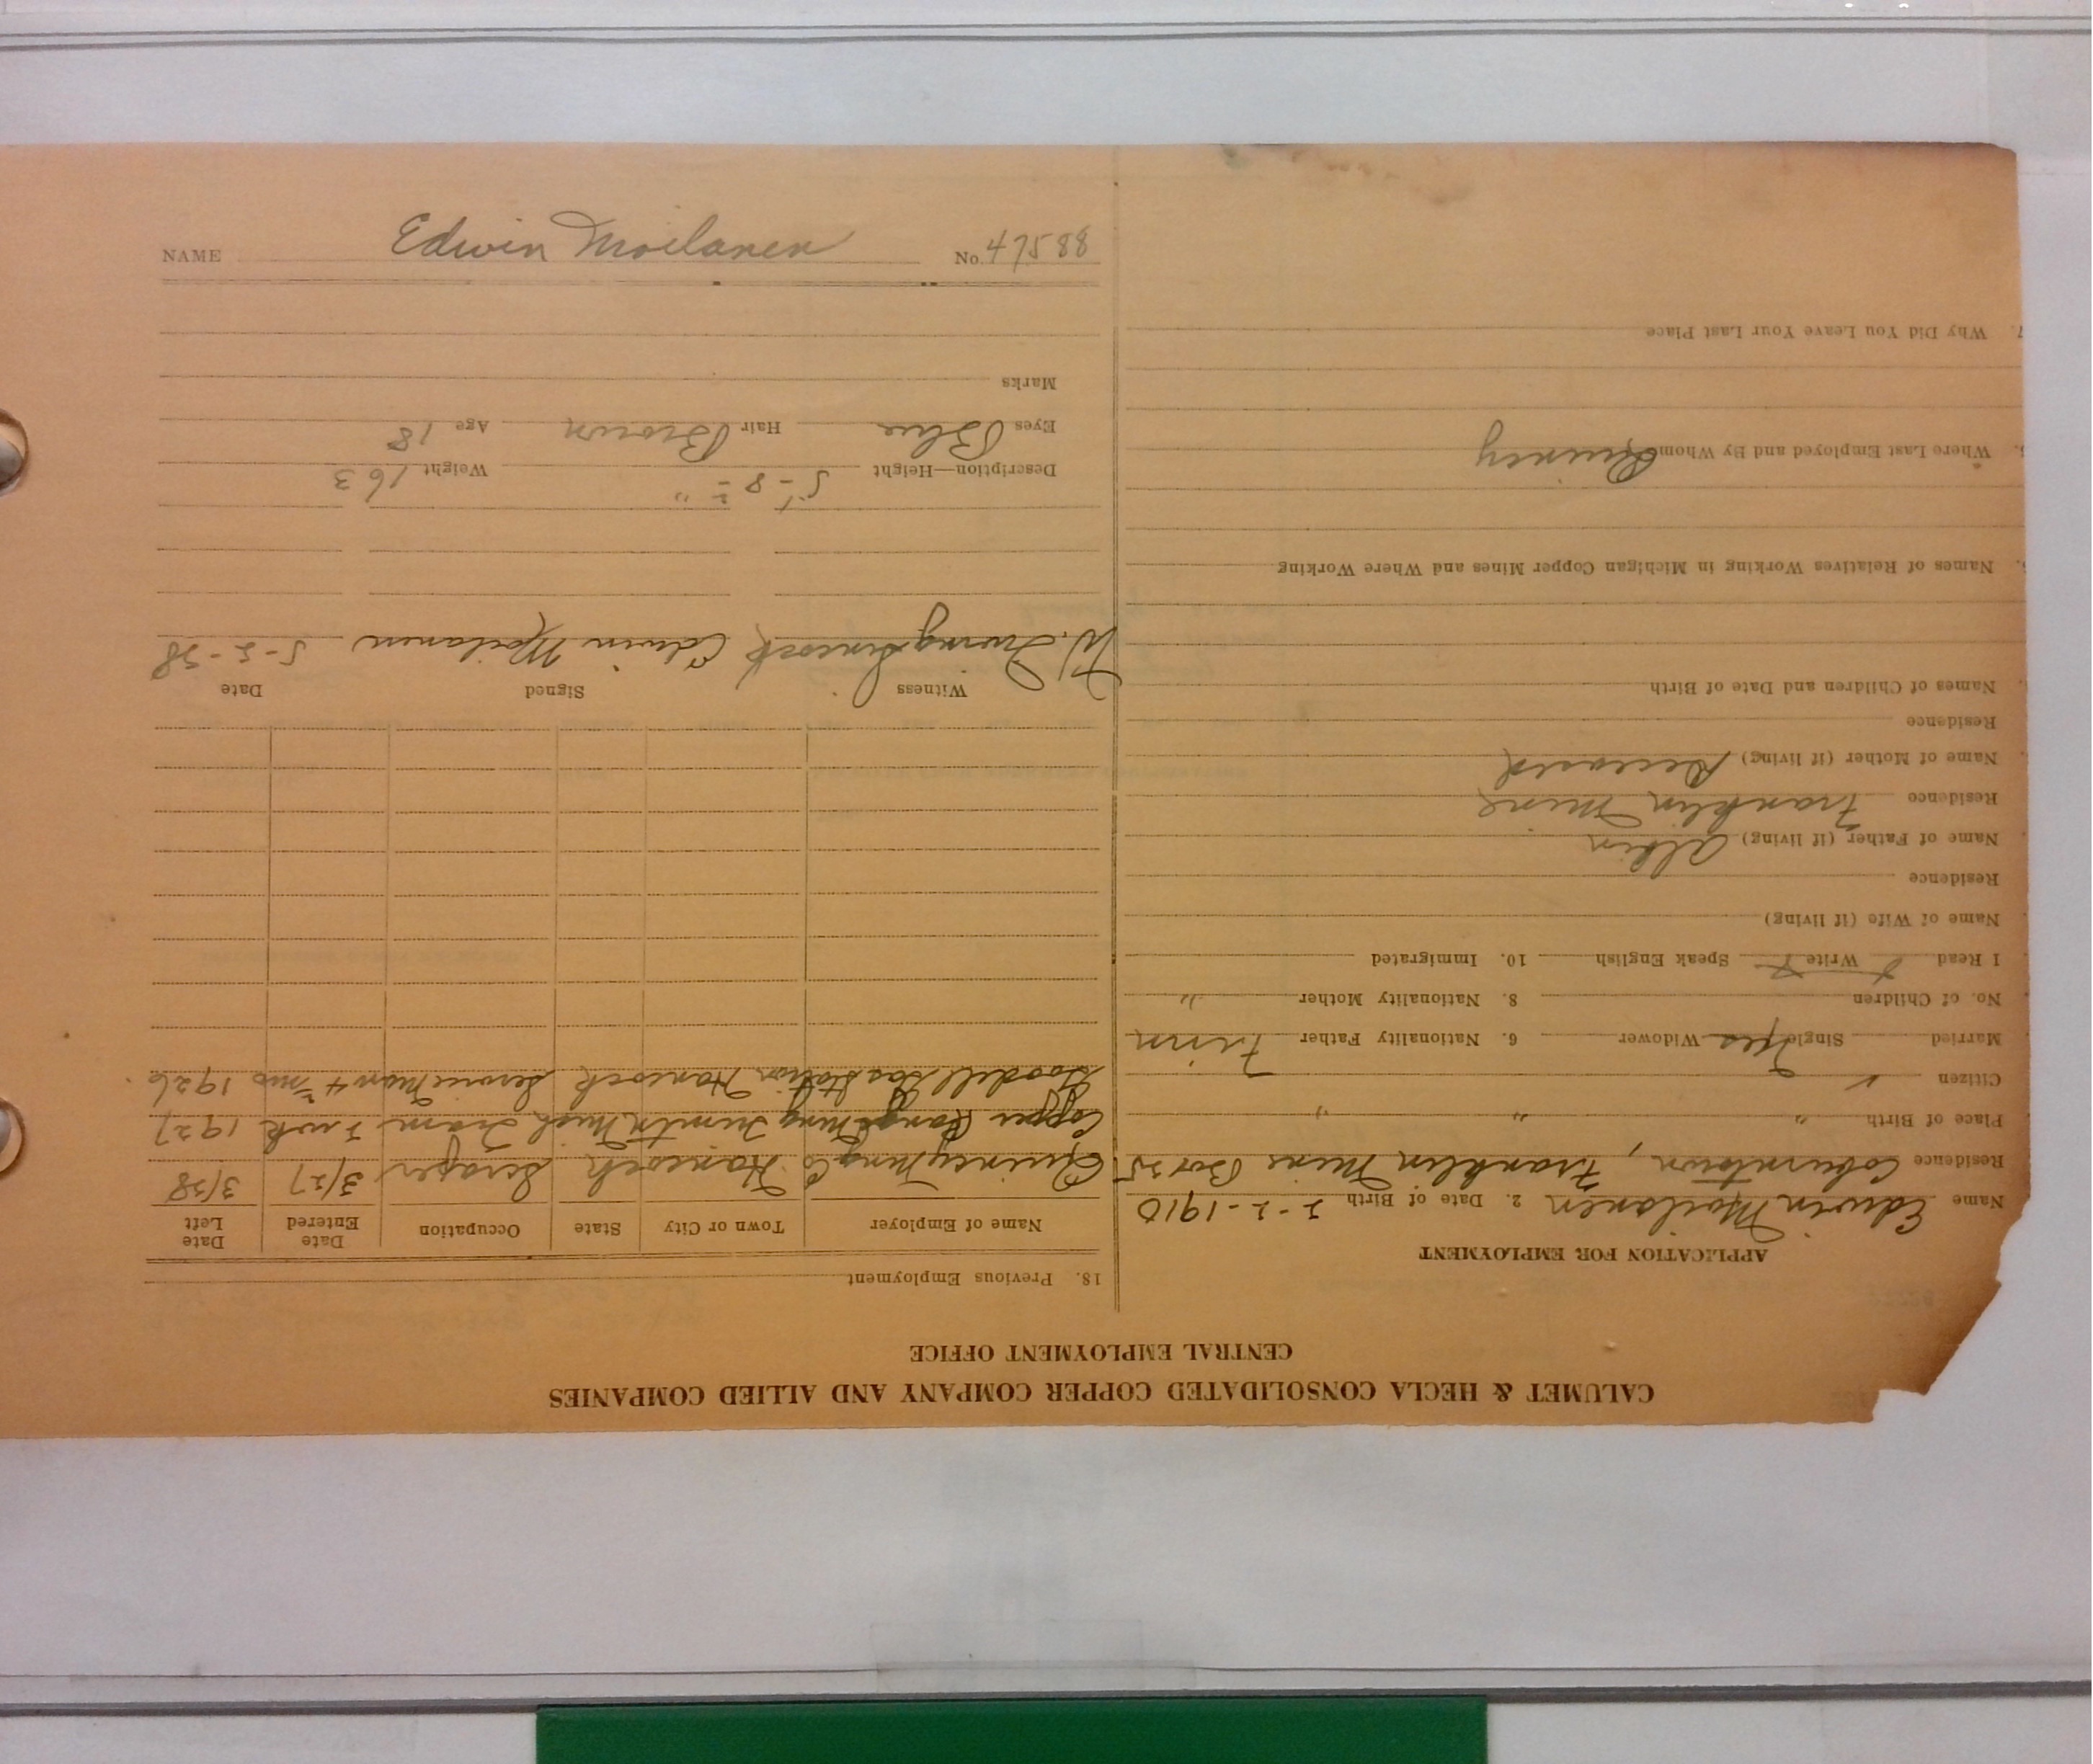 CALUMET & HECLA CONSOLIDATED COPPER COMPANY AND ALLIED COMPANIES
CENTRAL EMPLOYMENT OFFICE
APPLICATION FOR EMPLOYMENT
Name Edwin Moilanen 2. Date of Birth 2-2-1910
Residence Coburntown, Franklin Mine Box 35
Place of Birth " " "
Citizen ✓
Married Single Yes Widower 6. Nationality Father Finn
No. of Children 8. Nationality Mother "
I Read Write Speak English 10. Immigrated
Name of Wife (if living)
Residence
Name of Father (if living) Albin
Residence Franklin Mine
Name of Mother (if living) Deceased
Residence
Names of Children and Date of Birth
Names of Relatives Working in Michigan Copper Mines and Where Working
Where Last Employed and By Whom Quincy
7. Why Did You Leave Your Last Place
18. Previous Employment
Name of Employer Town or City State Occupation Date Entered Date Left
Quincy Mng Co Hancock Scraper 3/27 3/28
Copper Range Mng Mich Tram 2 wk 1927
Goodell Gas Station Hancock Service Man 4 mo 1926
Witness Signed Date
W. Irving Edwin Moilanen 5-2-28
Description—Height 5'-8 " Weight 163
Eyes Blue Hair Brown Age 18
Marks
NAME Edwin Moilanen No. 47588